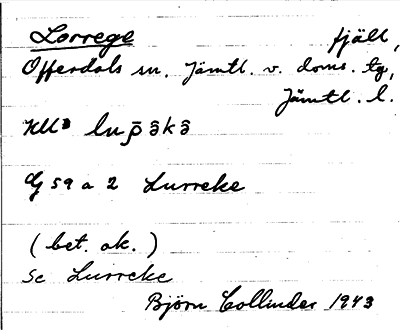 Lorrege fjäll,
Offerdals sn. Jämtl. v. doms. tg,
Jämtl. l.
G 59 a 2 Lurreke
(bet. ok.)
se Lurreke
Björn Collinder 1943